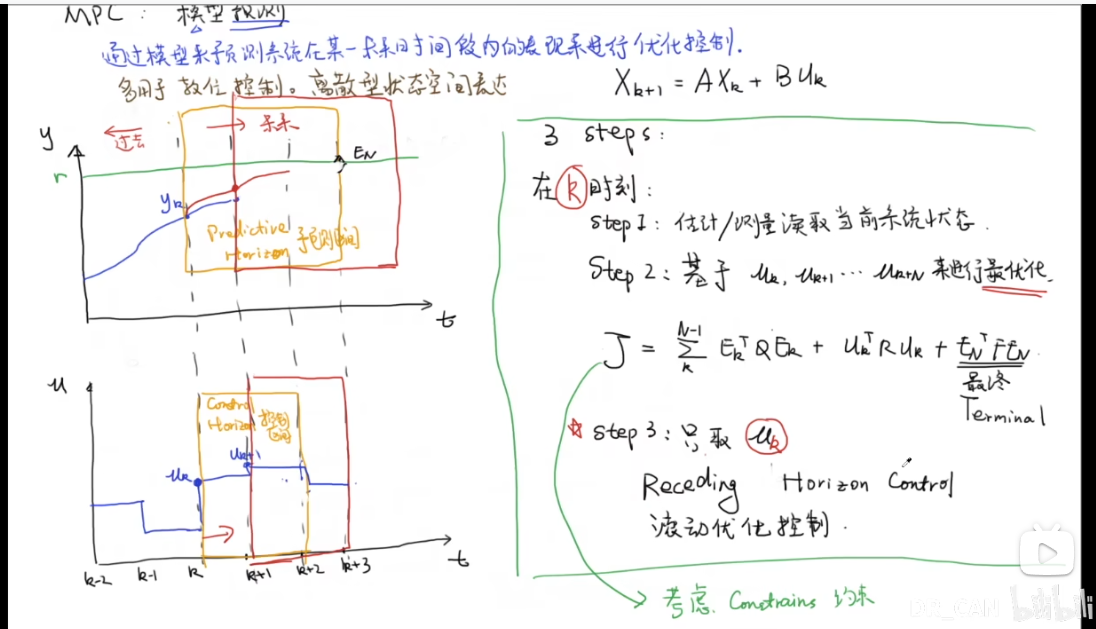 MPC: 模型预测
通过模型来预测系统在某一未来时间段内的表现来进行优化控制.
多用于数位控制。离散型状态空间表达
X_{k+1} = AX_k + BU_k
过去
未来
y
r
E_N
y_k
Predictive 预测区间
Horizon
t
u
Control 控制
Horizon 区间
u_k
u_{k+1}
k-2 k-1 k k+1 k+2 k+3
t
3 steps:
在 k 时刻:
step1: 估计/测量读取当前系统状态.
Step 2: 基于 u_k, u_{k+1} ... u_{k+N} 来进行最优化.
J = Σ_k^{N-1} E_k^T Q E_k + U_k^T R U_k + E_N^T F E_N
最终
Terminal
step 3: 只取 u_k
Receding Horizon Control
滚动优化控制.
考虑 Constrains 约束
DR_CAN bilibili